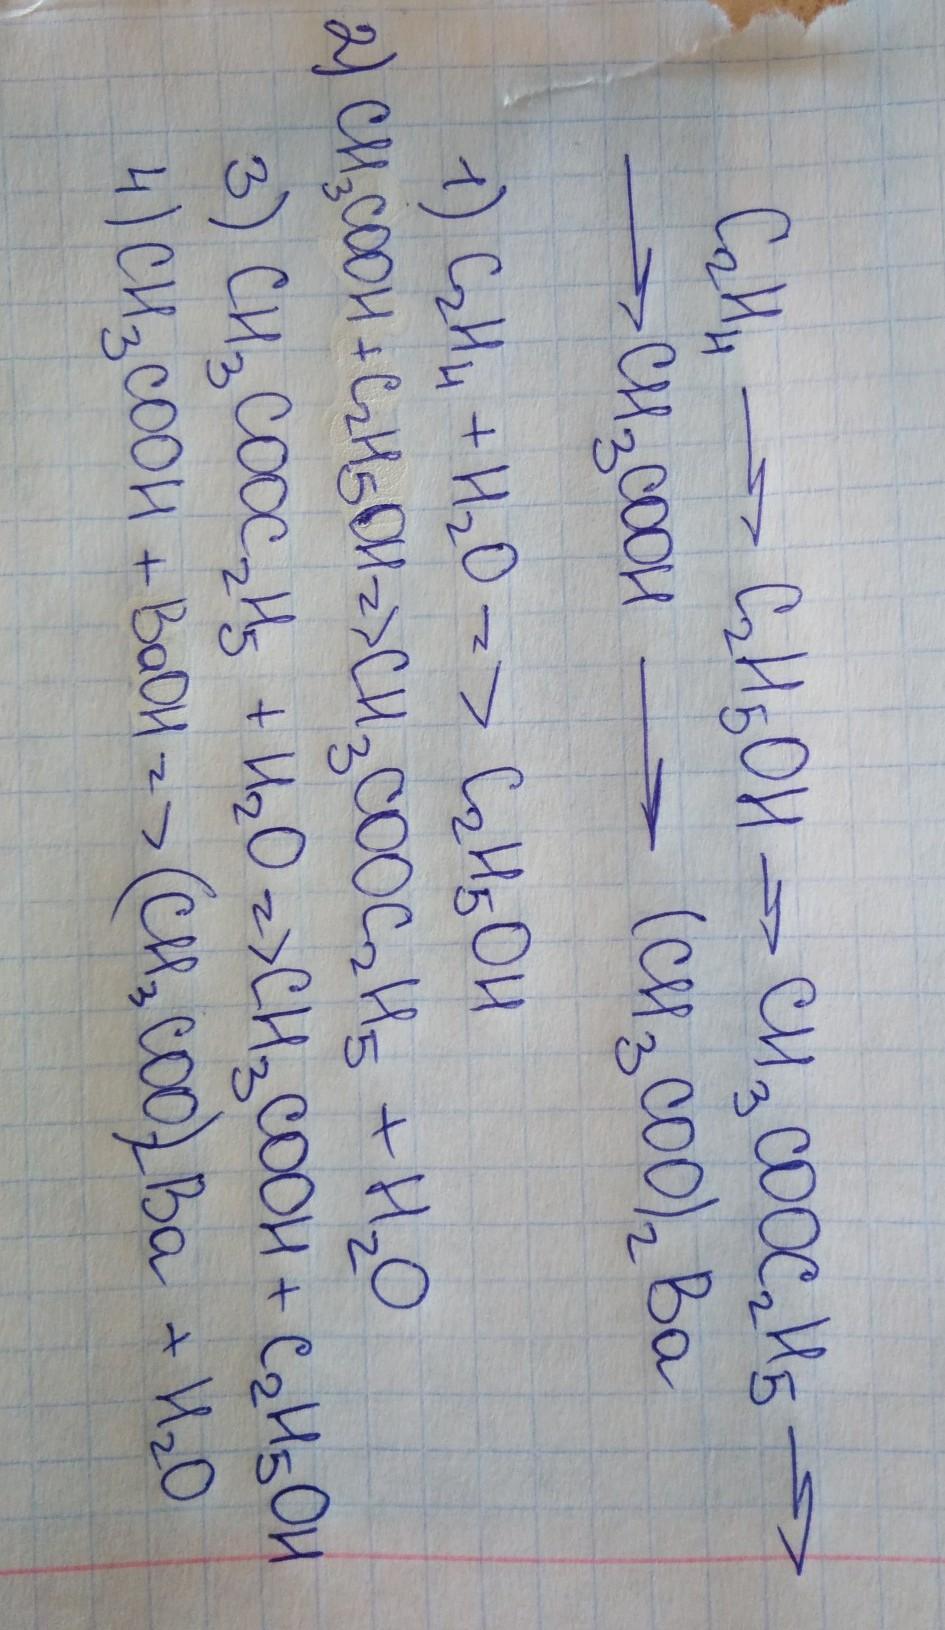 C₂H₄ → C₂H₅OH → CH₃COOC₂H₅ →
→ CH₃COOH → (CH₃COO)₂Ba
1) C₂H₄ + H₂O => C₂H₅OH
2) CH₃COOH + C₂H₅OH => CH₃COOC₂H₅ + H₂O
3) CH₃COOC₂H₅ + H₂O => CH₃COOH + C₂H₅OH
4) CH₃COOH + BaOH => (CH₃COO)₂Ba + H₂O